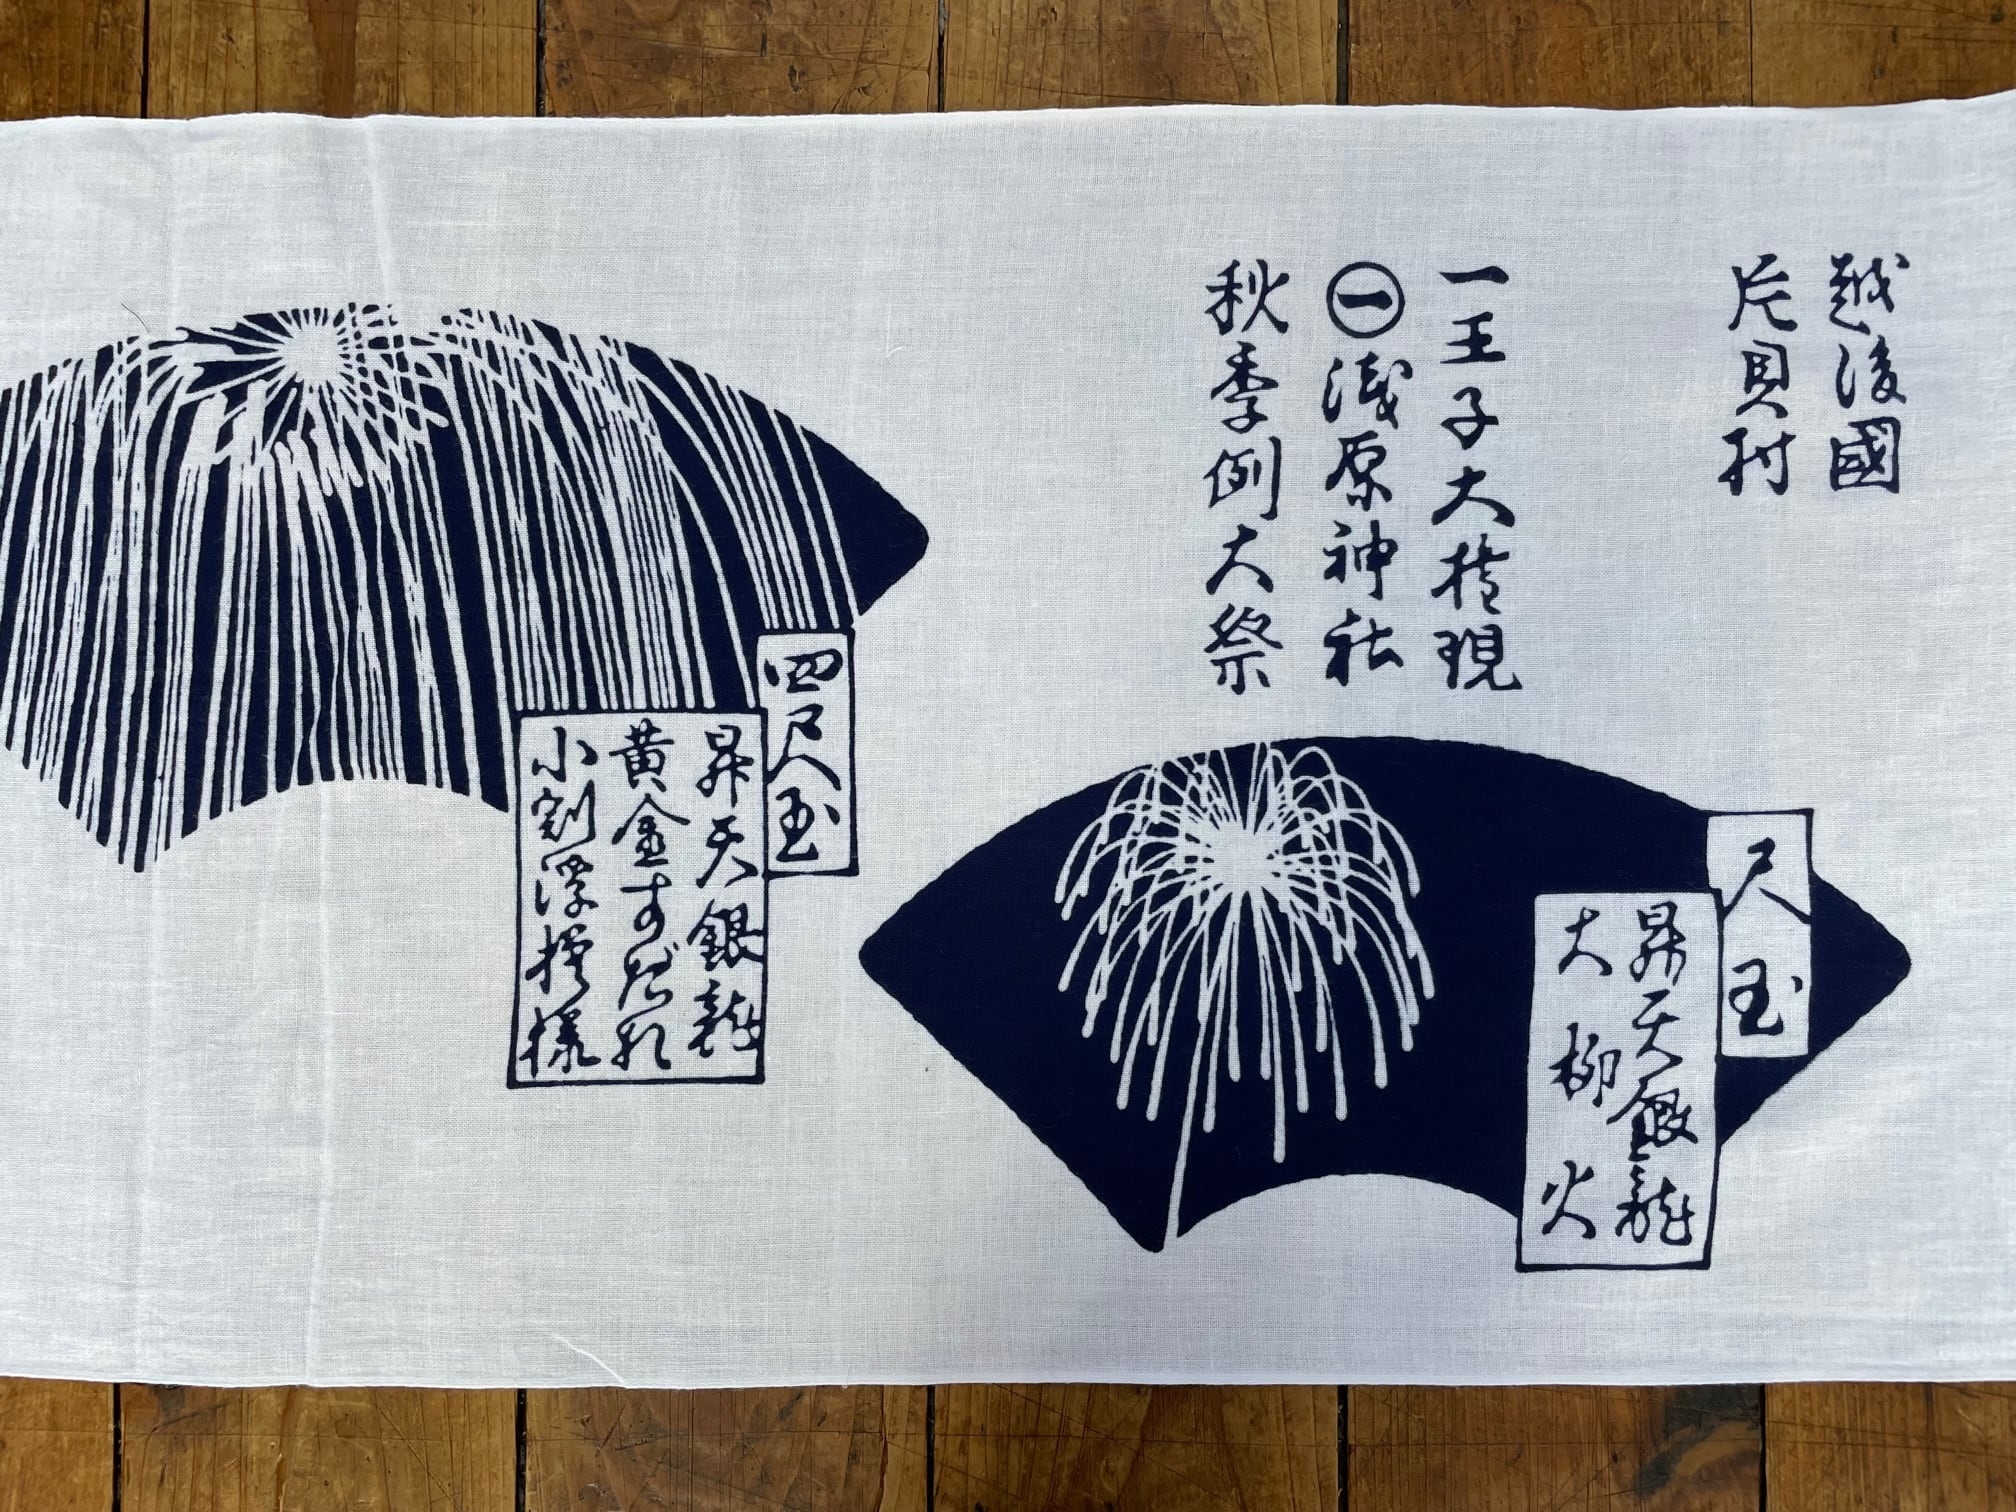 越後國
片貝村
一王子大権現
㊀浅原神社
秋季例大祭
尺玉
昇天銀龍
大柳火
四尺玉
昇天銀龍
黄金すだれ
小割浮模様